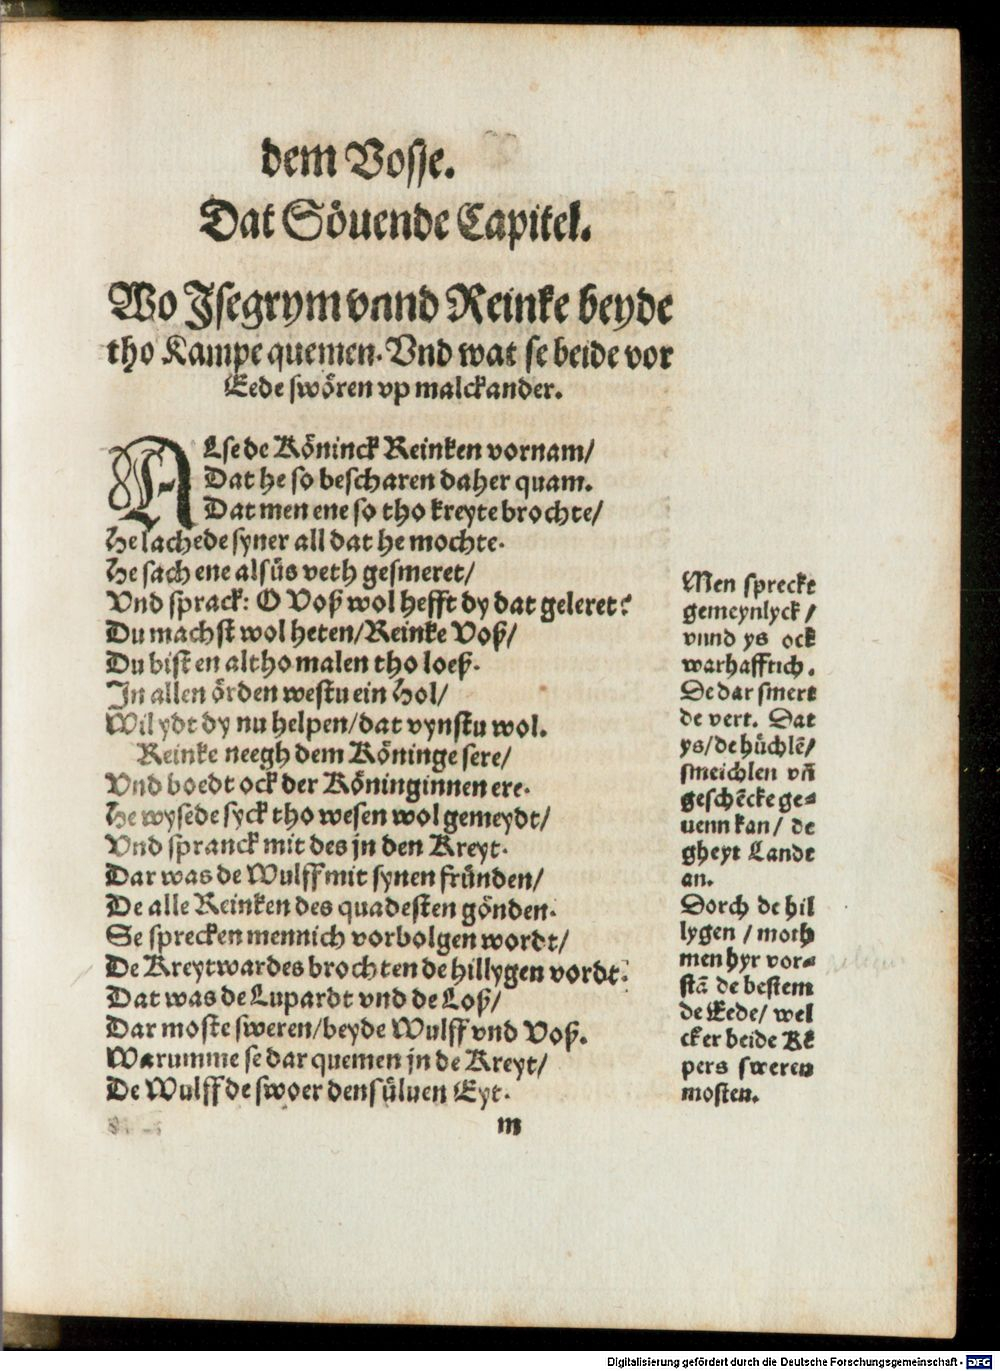 dem Vosse.
Dat Söuende Capitel.
Wo Jsegrym vnnd Reinke beyde
tho Kampe quemen. Vnd wat se beide vor
Eede swören vp malckander.
ALse de Köninck Reinken vornam/
Dat he so bescharen daher quam.
Dat men ene so tho kreyte brochte/
He lachede syner all dat he mochte.
He sach ene alsüs veth gesmeret/
Vnd sprack: O Voß wol hefft dy dat geleret?
Du machst wol heten/Reinke Voß/
Du bist en altho malen tho loeß.
Jn allen örden westu ein Hol/
Wil ydt dy nu helpen/dat vynstu wol.
Reinke neegh dem Köninge sere/
Vnd boedt ock der Köninginnen ere.
He wysede syck tho wesen wol gemeydt/
Vnd spranck mit des jn den Kreyt.
Dar was de Wulff mit synen fründen/
De alle Reinken des quadesten gönden.
Se sprecken mennich vorbolgen wordt/
De Kreytwardes brochten de hillygen vordt.
Dat was de Lupardt vnd de Loß/
Dar moste sweren/beyde Wulff vnd Voß.
Warumme se dar quemen jn de Kreyt/
De Wulff de swoer den süluen Eyt.
m
Men spreckt
gemeynlyck /
vnnd ys ock
warhafftich.
De dar smert
de vert. Dat
ys/de hüchlē/
smeichlen vn̄
geschēcke ge=
uenn kan/ de
gheyt Lande
an.
Dorch de hil
lygen / moth
men hyr vor=
stā de bestem
de Eede/ wel
cker beide Kē
pers sweren
mosten.
Digitalisierung gefördert durch die Deutsche Forschungsgemeinschaft - DFG